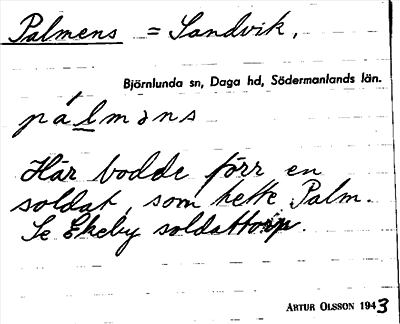 Palmens = Sandvik.
Björnlunda sn, Daga hd, Södermanlands län.
pálmɘns
Här bodde förr en
soldat, som hette Palm.
Se Ekeby soldattorp.
ARTUR OLSSON 1943